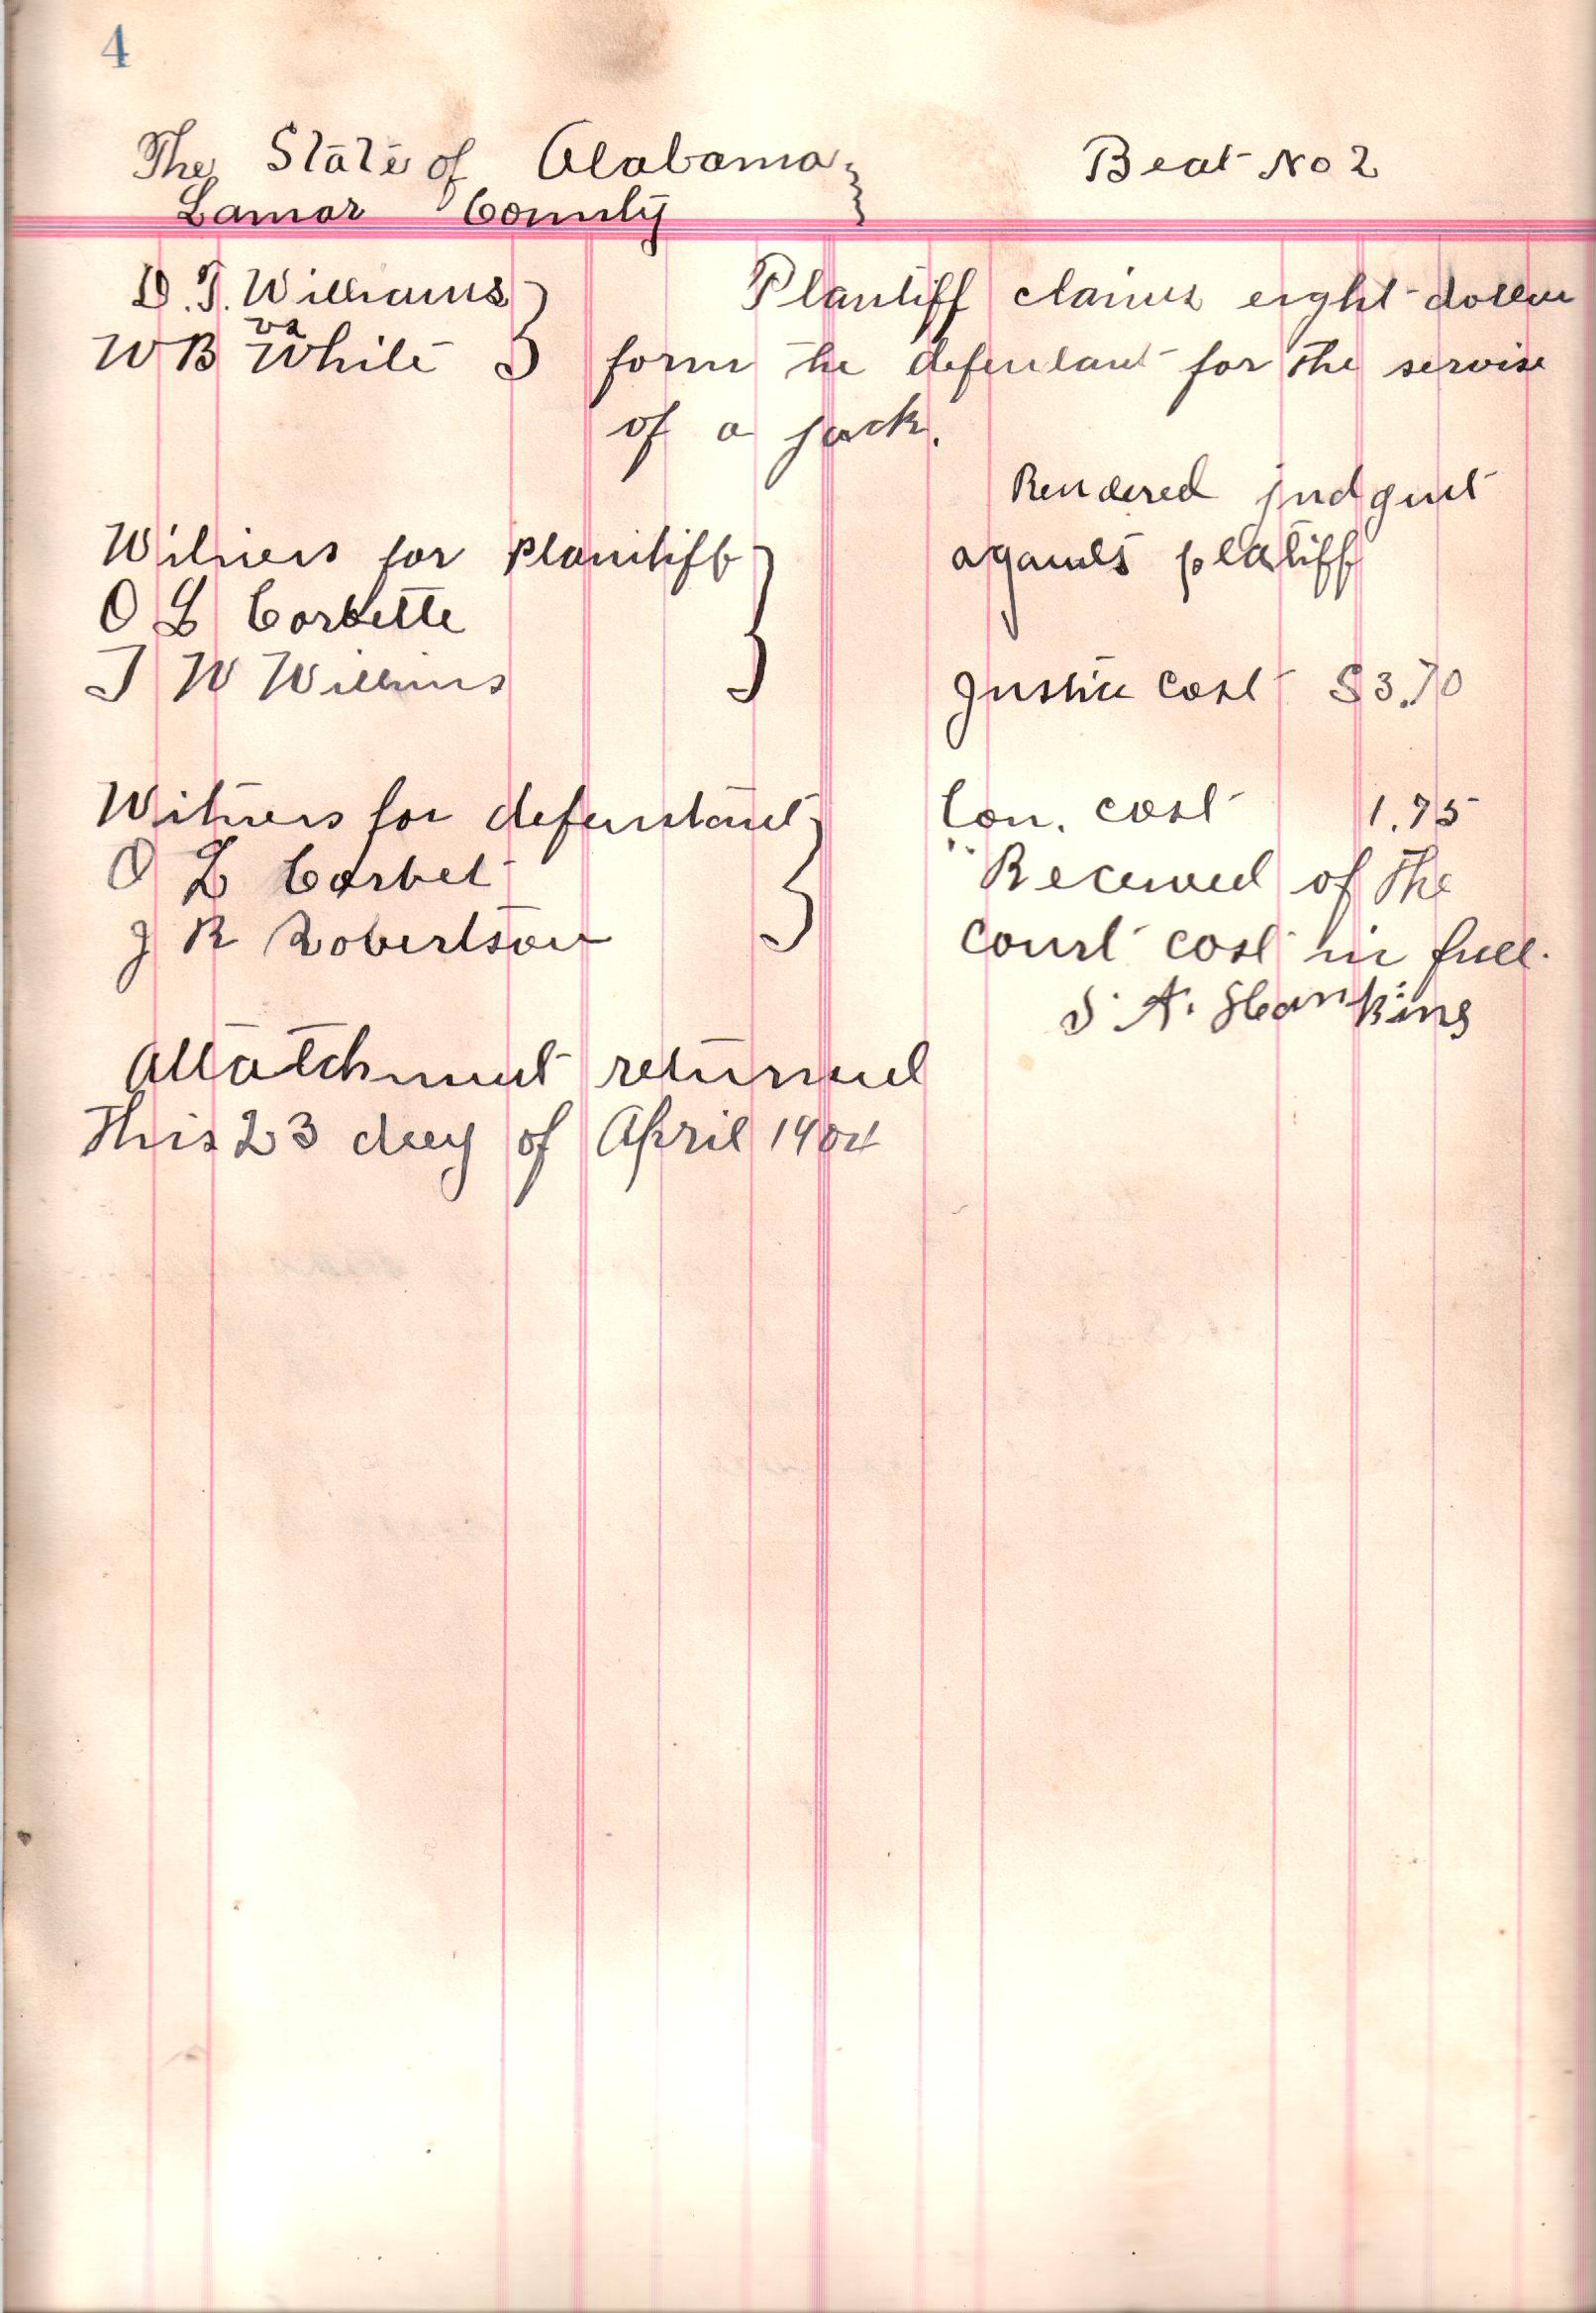 4
The State of Alabama
Beat No 2
Lamar County
D. T. Williams
vs
W B White
Plantiff claims eight dollar
form the defendant for the servise
of a jack.
Rendered judgmt
agants platiff
Witness for Plantiff
O L Corbette
T W Williams
Justice Cost $3.70
Witness for defendant
O L Corbet
J R Robertson
Con. cost 1.75
Received of the
court cost in full.
S. A. Hankins
Attatchment returned
This 23 day of April 1904